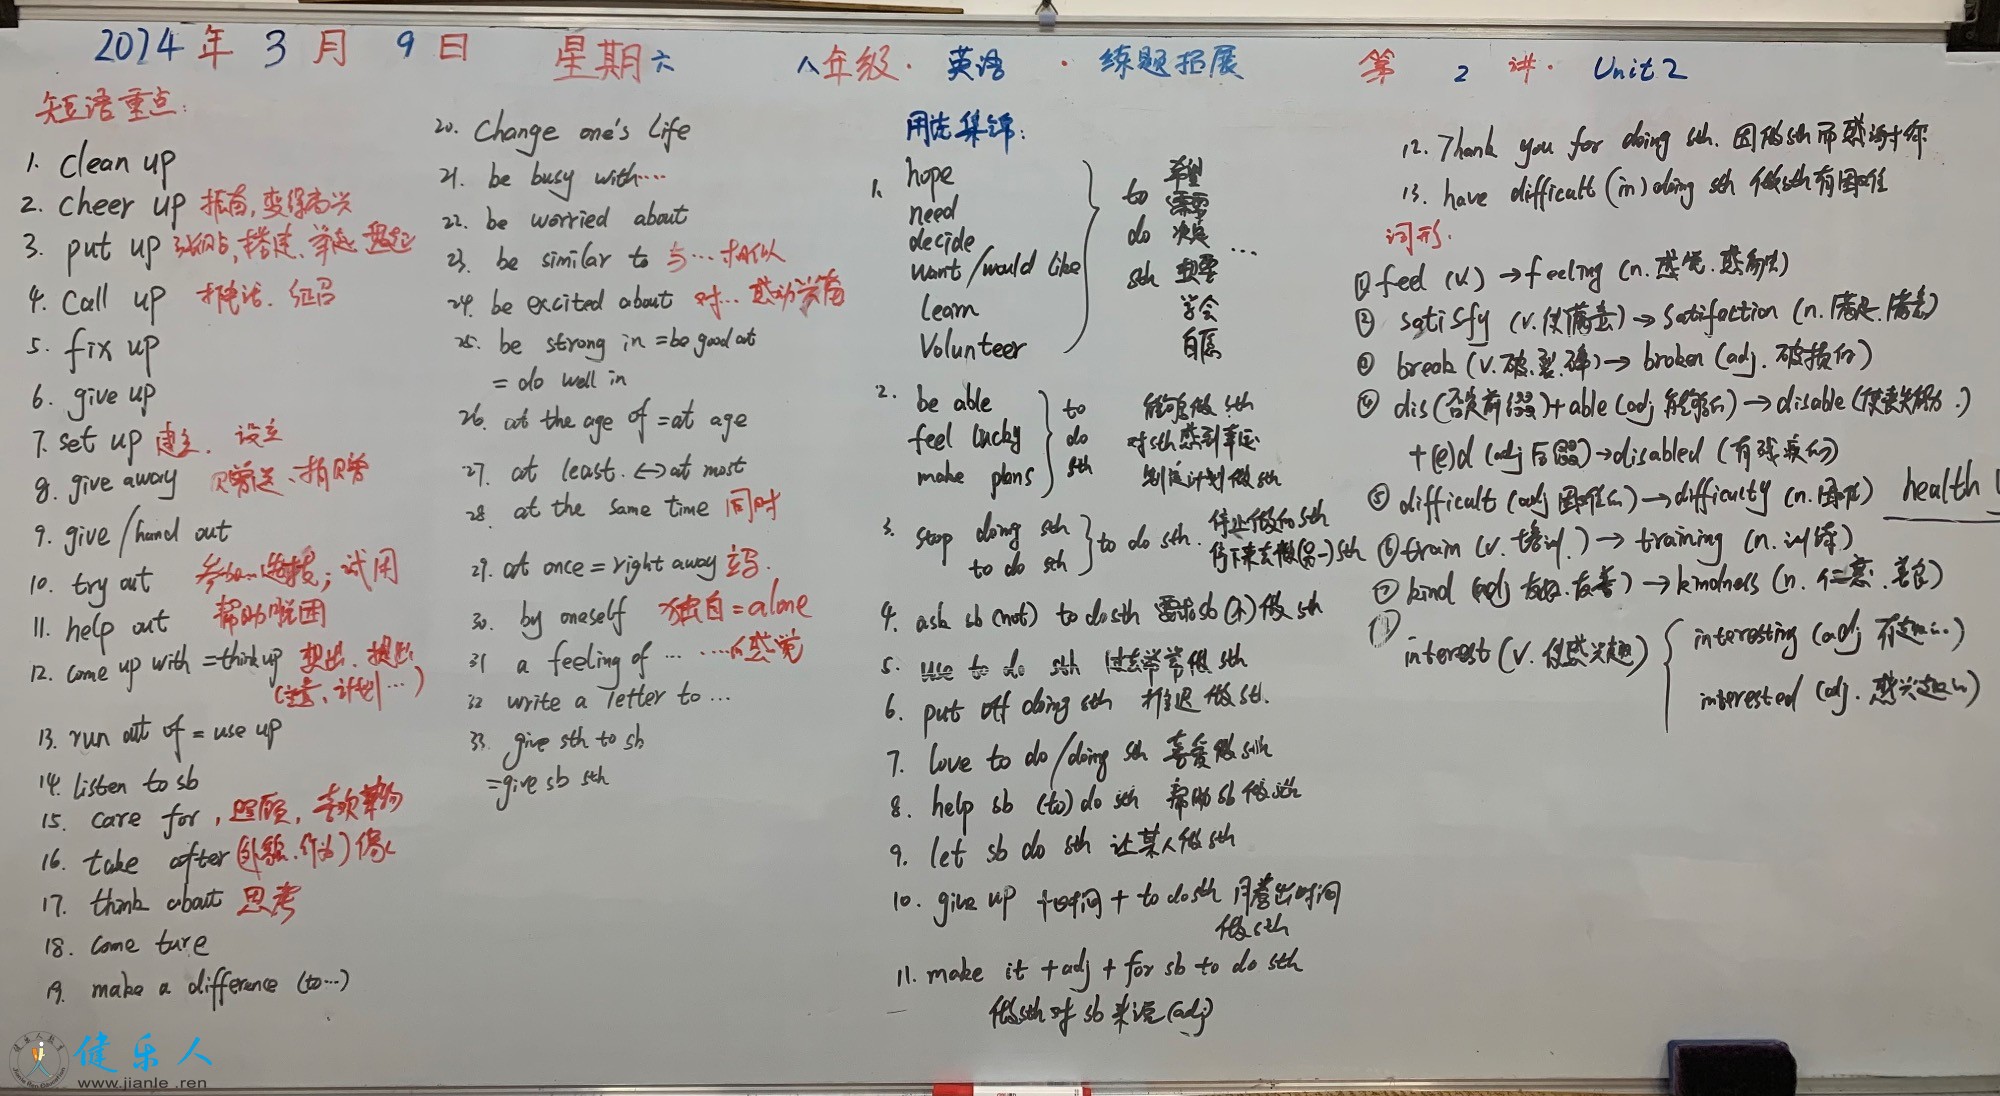 2024年3月9日 星期六 八年级·英语·练题拓展 第2讲·Unit2
短语重点:
1. clean up
2. cheer up 振奋,变得高兴
3. put up 张贴,搭建、举起
4. call up 打电话、征召
5. fix up
6. give up
7. set up 建立、设立
8. give away 赠送、捐赠
9. give/hand out
10. try out 参加…选拔;试用
11. help out 帮助脱困
12. come up with =think up 想出、提出
(主意、计划…)
13. run out of = use up
14. listen to sb
15. care for, 照顾,
16. take after (外貌、行为)像
17. think about 思考
18. come ture
19. make a difference (to…)
20. Change one's life
21. be busy with……
22. be worried about
23. be similar to 与…相似
24. be excited about 对…感动兴奋
25. be strong in =be good at
= do well in
26. at the age of =at age
27. at least. ↔ at most
28. at the same time 同时
29. at once = right away 立马.
30. by oneself 独自=alone
31 a feeling of … ……的感觉
32 write a letter to …
33. give sth to sb
=give sb sth
用法集锦:
1. hope 希望
need 需要
decide 决定
want/would like 想要
learn 学会
Volunteer 自愿
to do sth …
2. be able 能够做sth
feel lucky 对sth感到幸运
make plans 制定计划做sth
to do sth
3. stop doing sth 停止做sth
to do sth 停下来去做(另一)sth
to do sth.
4. ask sb (not) to do sth 要求sb(不)做sth
5. use to do sth 过去常常做sth
6. put off doing sth 推迟做st.
7. love to do/doing sth 喜爱做sth
8. help sb (to) do sth 帮助sb做sth
9. let sb do sth 让某人做sth
10. give up +时间+ to do sth 用着出时间
做sth
11. make it +adj + for sb to do sth
做sth对sb来说(adj)
12. Thank you for doing sth. 因做sth而感谢你
13. have difficult (in) doing sth 做sth有困难
词形.
① feel (v.) → feeling (n. 感觉.感知)
② satisfy (v.使满意) → satifaction (n.满足.满意)
③ break (v.破.裂.碎) → broken (adj. 破损的)
④ dis(否定前缀)+able (adj 能够的) → disable (使丧失能力.)
+(e)d (adj后缀) → disabled (有残疾的)
⑤ difficult (adj 困难的) → difficulty (n.困难) health
⑥ train (v. 培训.) → training (n. 训练)
⑦ kind (adj 友好.友善) → kindness (n. 仁慈.善良)
interest (v. 使感兴趣)
interesting (adj 有趣的.)
interested (adj. 感兴趣的)
健乐人
www.jianle.ren